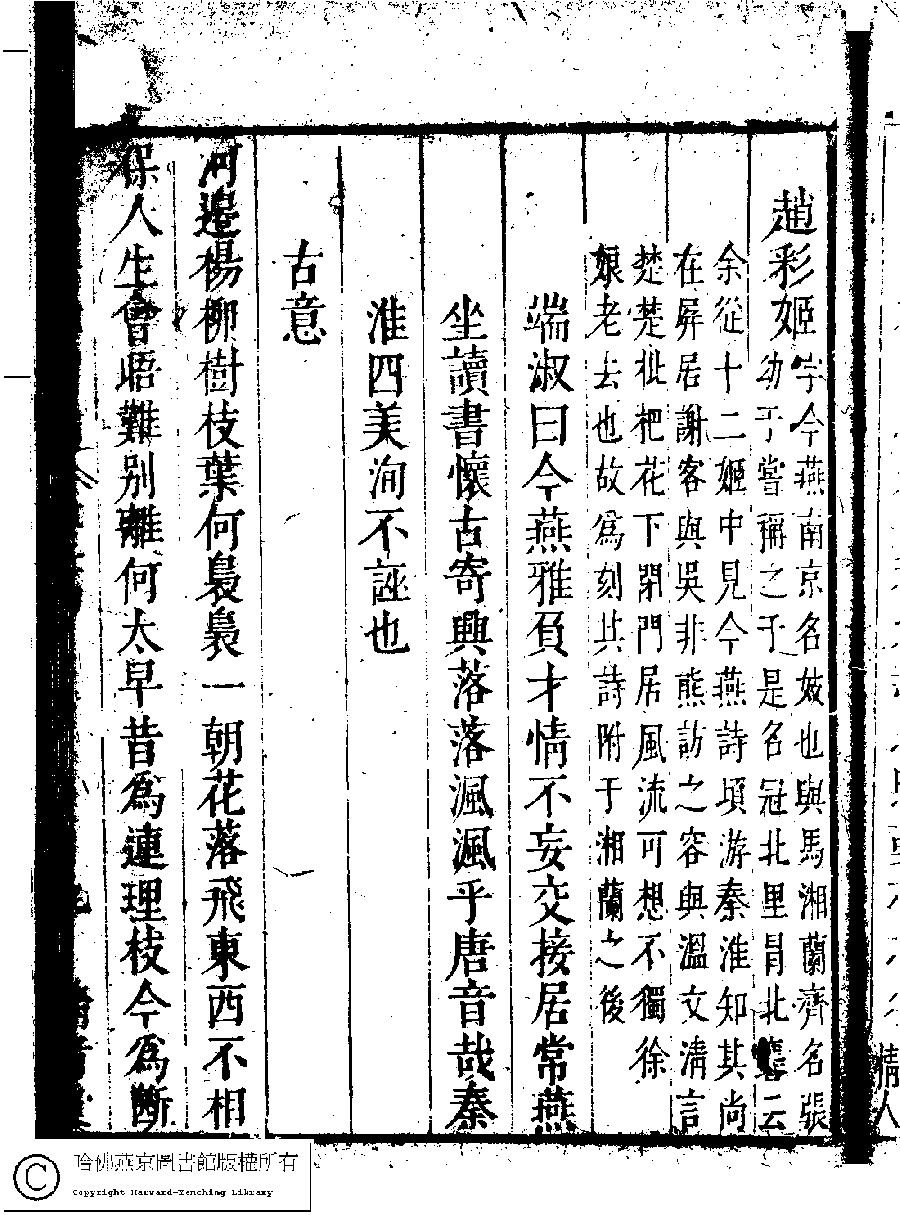 趙彩姬
字今燕南京名妓也與馬湘蘭齊名張
幼于嘗稱之于是名冠北里冒北羣云
余從十二姬中見今燕詩頃游秦淮知其尚
在屏居謝客與吳非熊訪之容與溫文淸言
楚楚枇杷花下閉門居風流可想不獨徐
娘老去也故爲刻其詩附于湘蘭之後
端淑曰今燕雅負才情不妄交接居常燕
坐讀書懷古寄興落落渢渢乎唐音哉秦
淮四美洵不誣也
古意
河邊楊柳樹枝葉何裊裊一朝花落飛東西不相
保人生會晤難別離何太早昔爲連理枝今爲斷
情人
哈佛燕京圖書館版權所有
Copyright Harvard-Yenching Library